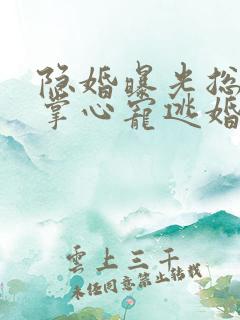 隐婚曝光总
掌心宠逃婚
雲上三千
未经同意禁止转载